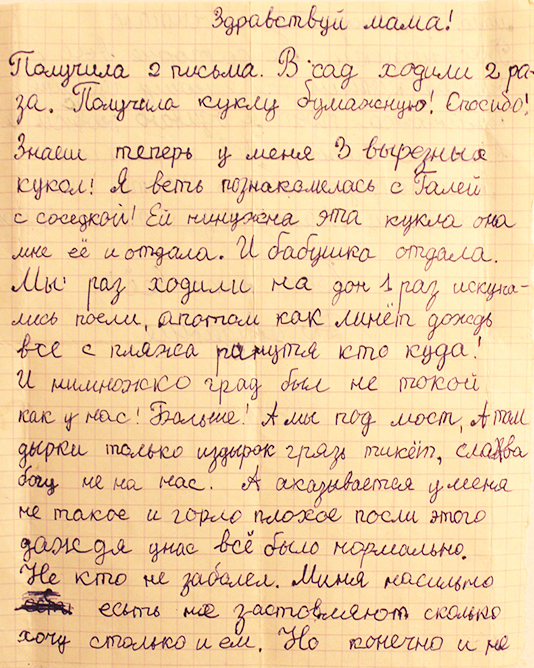 Здравствуй мама!
Получила 2 письма. В сад ходили 2 ра-
за. Получила куклу бумажную! Спосибо!
Знаеш теперь у меня 3 вырезных
кукол! Я веть познакомелась с Галей
с соседкой! Ей нинужна эта кукла она
мне её и отдала. И бабушка отдала.
Мы раз ходили на дон 1 раз искупа-
лись поели, апотом как линёт дождь
все с пляжа ранутя кто куда!
И нимножко град был не токой
как у нас! Больше! А мы под мост, А там
дырки только издырок грязь тикёт, слахва
богу не на нас. А аказывается уменя
не такое и горло плохое посли этого
даждя унас всё было нормально.
Не кто не заболел. Миня насильно
есть не застовляют сколько
хочу столько и ем. Но конечно и не